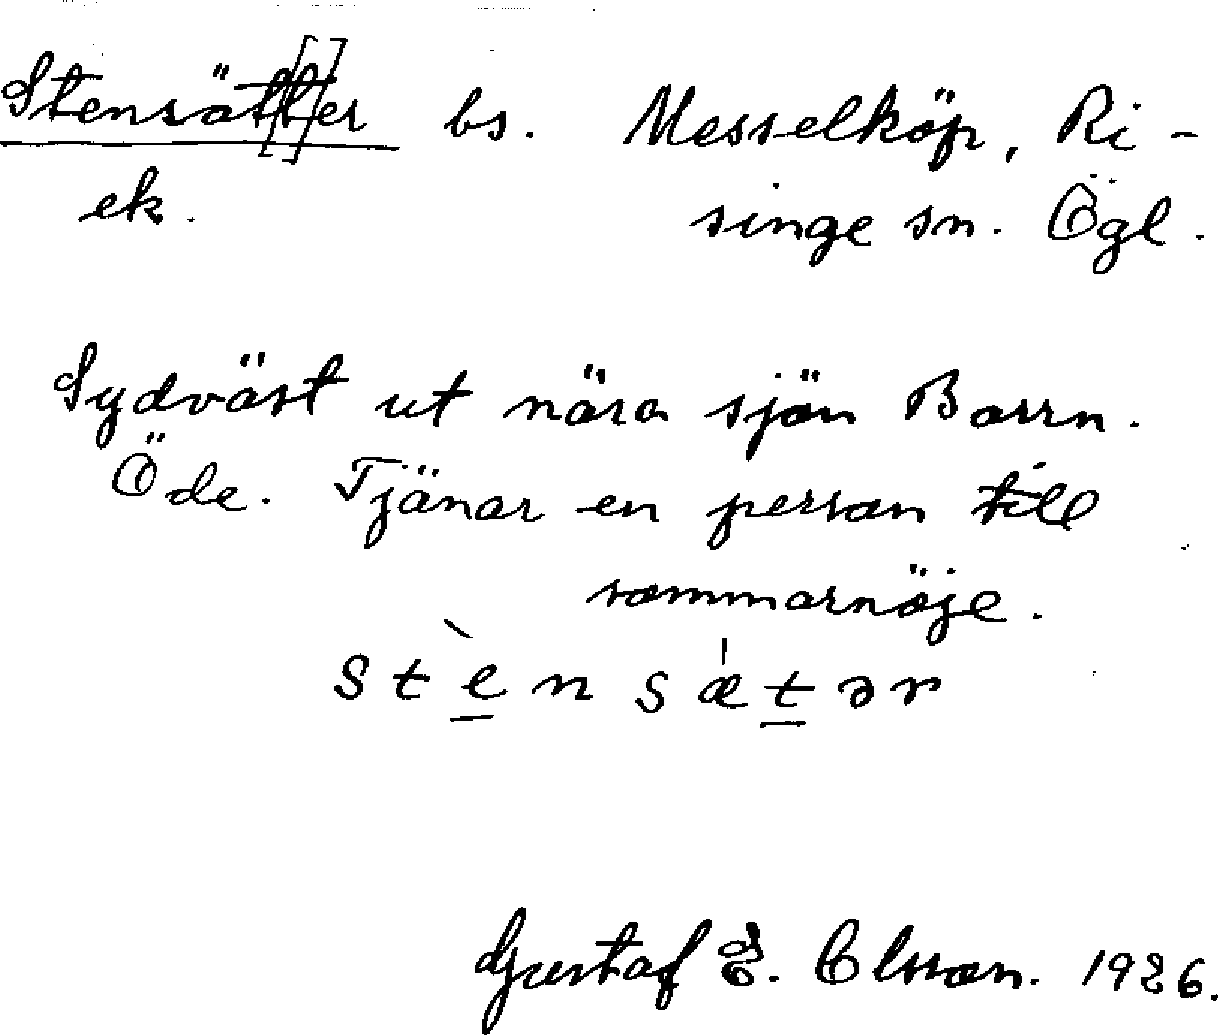 Stensät[t]er bs. Messelköp, Ri-
ek. singe sn. Ögl.
Sydväst ut nära sjön Borrn.
Öde. Tjänar en person till
sommarnöje.
stènsætər
Gustaf E. Olsson. 1926.